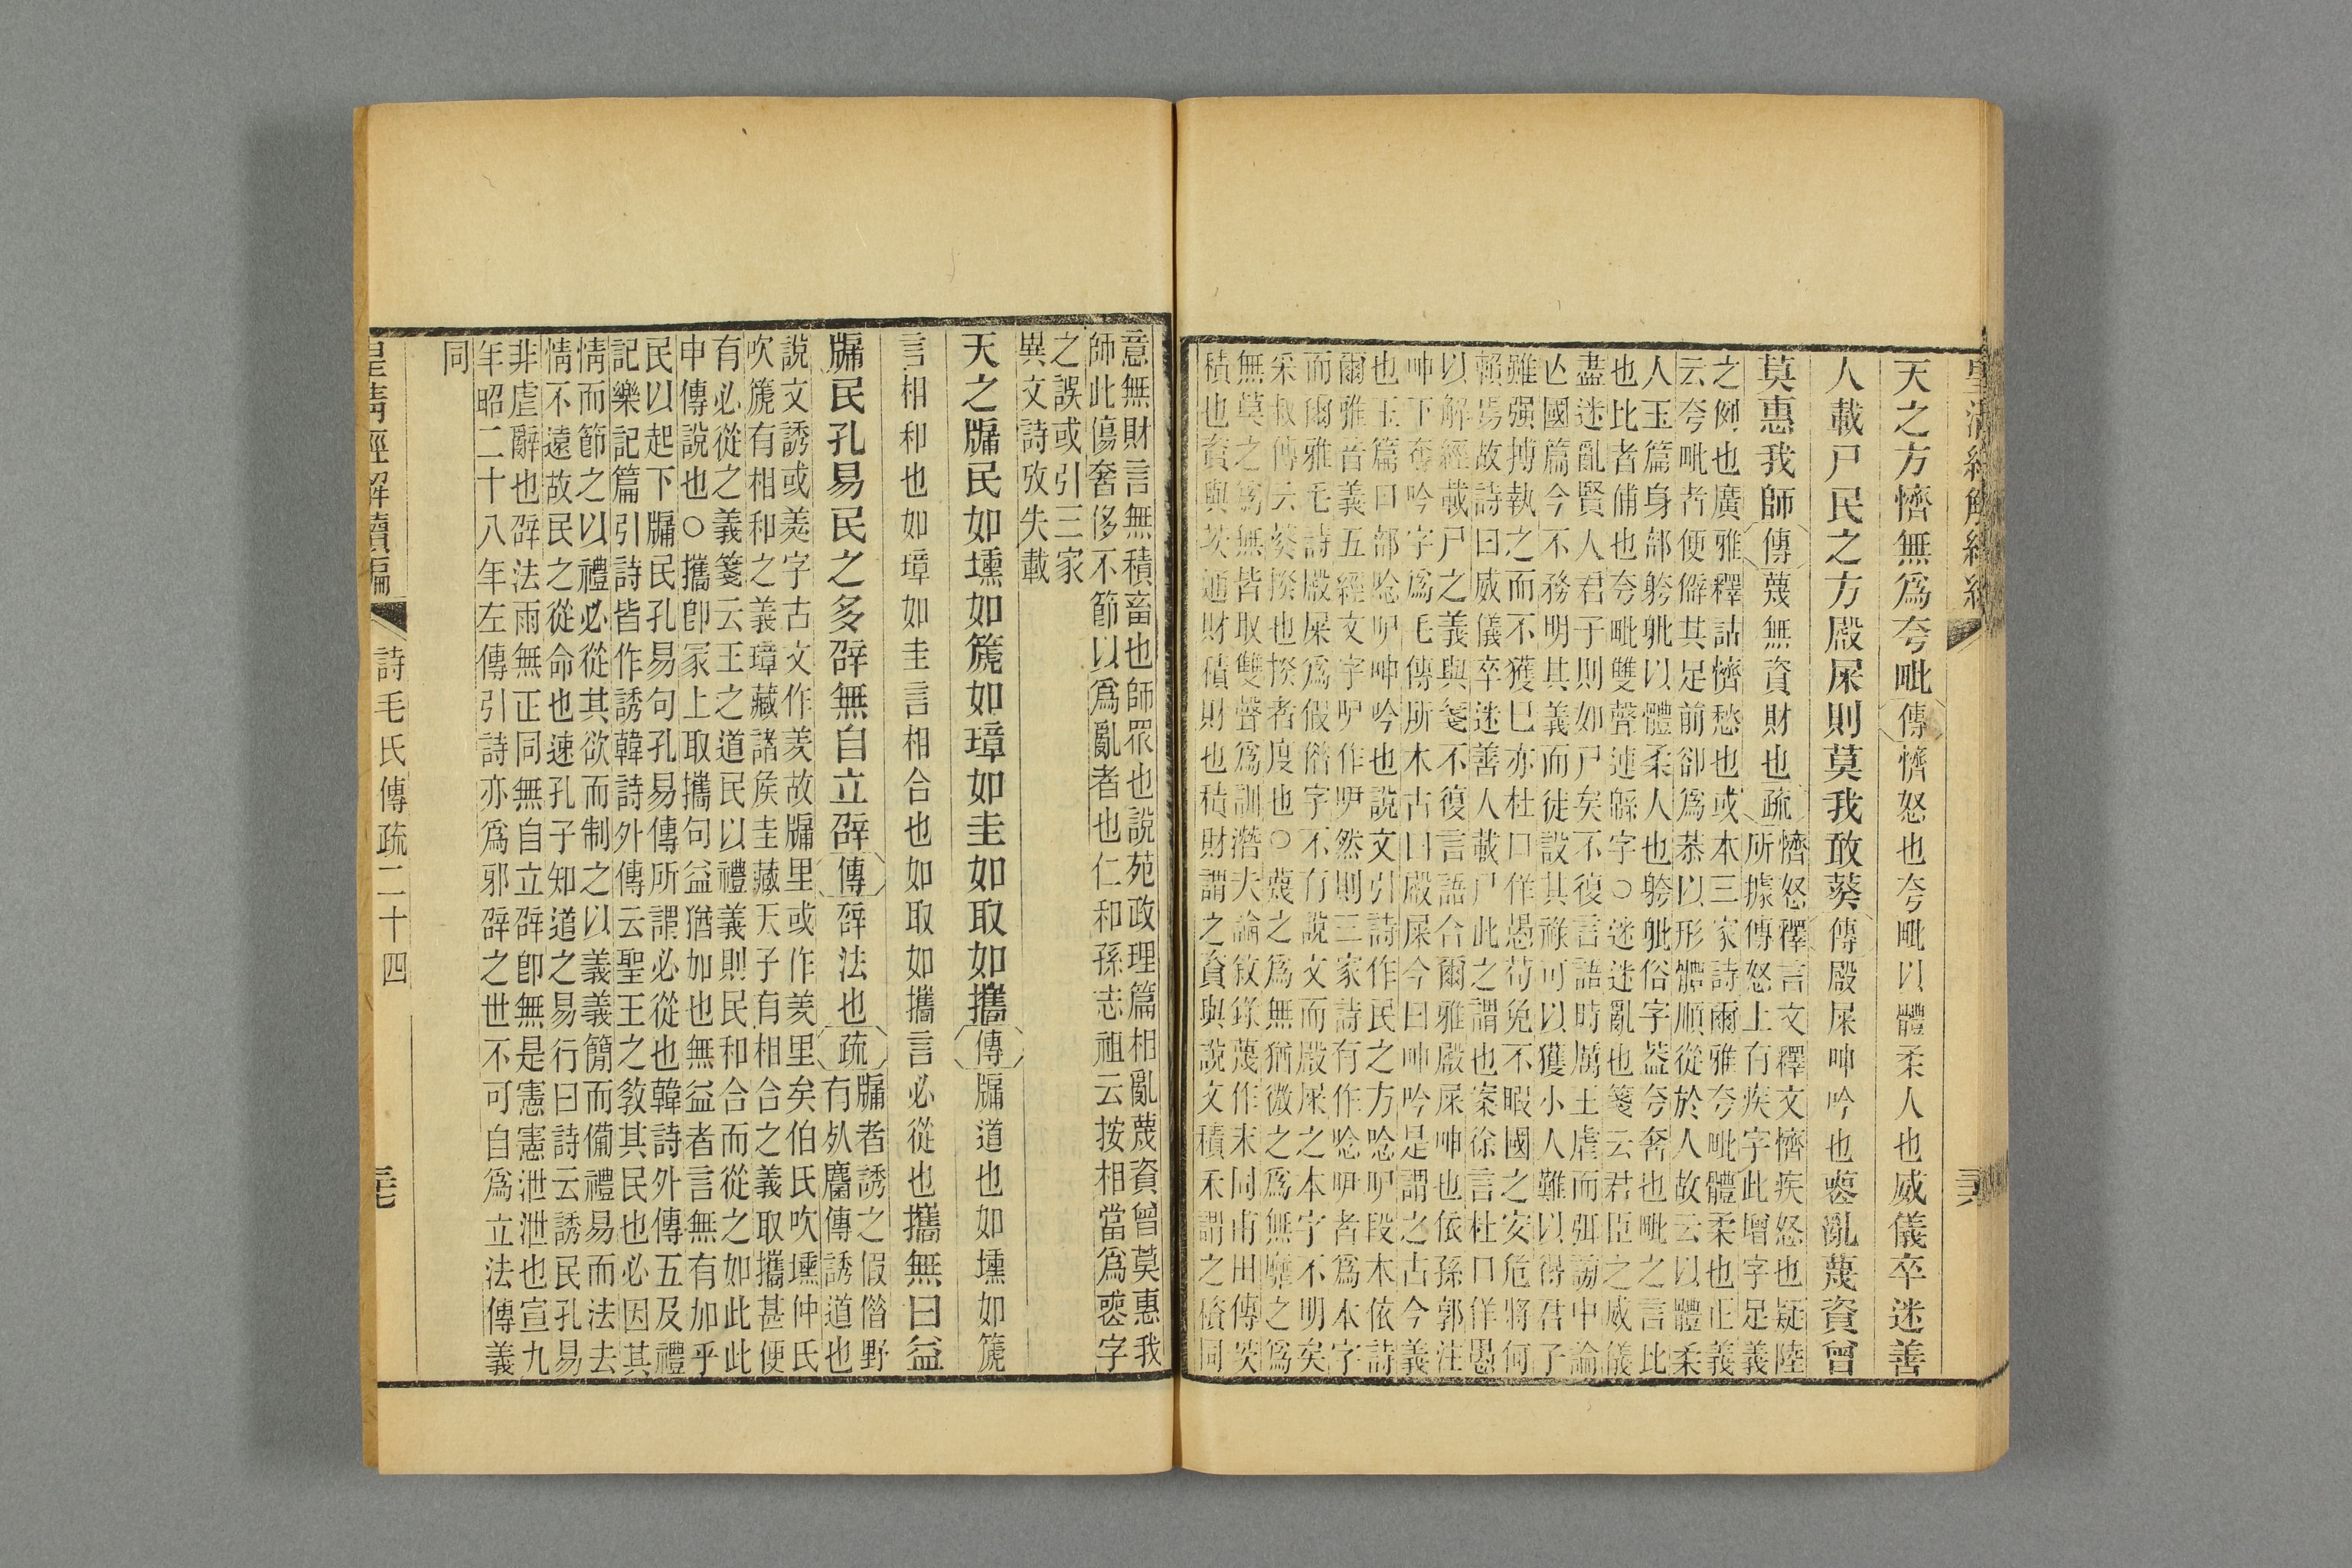 天之方懠無爲夸毗傳懠怒也夸毗以體柔人也威儀卒迷善
人載尸民之方殿屎則莫我敢葵傳殿屎呻吟也喪亂蔑資曾
莫惠我師傳蔑無資財也疏
懠怒釋言文釋文懠疾怒也疑陸
所據傳怒上有疾字此增字足義
之例也廣雅釋詁懠愁也或本三家詩爾雅夸毗體柔也正義
云夸毗者便僻其足前卻爲恭以形體順從於人故云以體柔
人玉篇身部躼躰以體柔人也躼躰俗字葢夸奢也毗之言比
也比者俌也夸毗雙聲連緜字○迷迷亂也箋云君臣之威儀
盡迷亂賢人君子則如尸矣不復言語時厲王虐而弭謗中論
亾國篇今不務明其義而徒設其祿可以獲小人難以得君子
雖强搏執之而不獲已亦杜口佯愚苟免不暇國之安危將何
賴焉故詩曰威儀卒迷善人載尸此之謂也案徐言杜口佯愚
以解經載尸之義與箋不復言語合爾雅殿屎呻也依孫郭注
呻下奪吟字爲毛傳所本古曰殿屎今曰呻吟是謂之古今義
也玉篇口部唸呎呻吟也說文引詩作民之方唸呎段本依詩
爾雅音義五經文字呎作吚然則三家詩有作唸吚者爲本字
而爾雅毛詩殿屎爲假俗字不有說文而殿屎之本字不明矣
采叔傳云葵揆也揆者度也○蔑之爲無猶微之爲無靡之爲
無莫之爲無皆取雙聲爲訓潛夫論敘錄蔑作末同甫田傳茨
積也資與茨通財積財也積財謂之資與說文積禾謂之䅣同
意無財言無積畜也師眾也說苑政理篇相亂蔑資曾莫惠我
師此傷奢侈不節以爲亂者也仁和孫志祖云按相當爲喪字
之誤或引三家
異文詩攷失載
天之牖民如壎如篪如璋如圭如取如攜傳牖道也如壎如篪
言相和也如璋如圭言相合也如取如攜言必從也攜無曰益
牖民孔易民之多辟無自立辟傳辟法也疏
牖者誘之假借野
有死麕傳誘道也
說文誘或羑字古文作羑故牖里或作羑里矣伯氏吹壎仲氏
吹篪有相和之義璋藏諸矦圭藏天子有相合之義取攜甚便
有必從之義箋云王之道民以禮義則民和合而從之如此此
申傳說也○攜卽冡上取攜句益猶加也無益者言無有加乎
民以起下牖民孔易句孔易傳所謂必從也韓詩外傳五及禮
記樂記篇引詩皆作誘韓詩外傳云聖王之敎其民也必因其
情而節之以禮必從其欲而制之以義義簡而備禮易而法去
情不遠故民之從命也速孔子知道之易行曰詩云誘民孔易
非虛辭也辟法雨無正同無自立辟卽無是憲憲泄泄也宣九
年昭二十八年左傳引詩亦爲邪辟之世不可自爲立法傳義
同
皇清經解續編 詩毛氏傳疏二十四